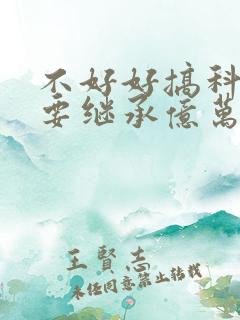 不好好搞科
要继承億萬
王賢志
未经同意禁止转载